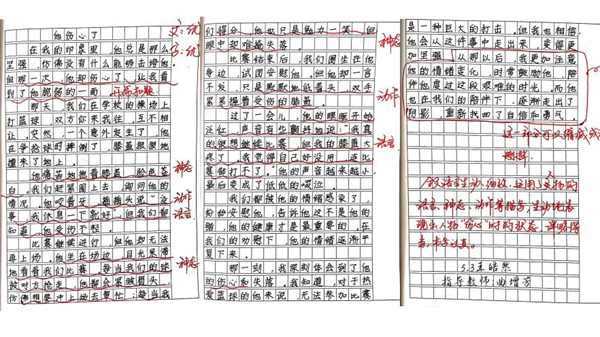 他伤心了
在我的印象里，他总是那么
坚强，仿佛没有什么能够击垮他。
但那一次，他却伤心了，让我看
到了他脆弱的一面。
那天，我们在学校的操场上
打篮球，双方你来我往，互不相
让，突然，一个意外发生了，他
在争抢球时摔倒了，膝盖狠狠地
撞来了地上。
他痛苦地捂着膝盖，脸色苍
白，我们赶紧围上去，询问他的
情况。他咬着牙，摇摇头说：“没
事，我休息一下就好。”但我们都
知道，他受伤不轻。
比赛继续进行，但他却无法
再上场。他坐在场边，目光紧紧
地看着我们比赛，每当我们的球
被对方抢走，他都会紧皱眉头，
仿佛想要冲上场去帮忙；每当我
神态
动作
语言
神态
们得分，他也只是勉力一笑，但
眼中却难掩失落。
比赛结束后，我们围坐在他
身边，试图安慰他，但他却一言
不发，只是默默地低着头，双手
紧紧握着受伤的膝盖。
过了一会儿，他的眼眶开始
泛红，声音有些颤抖地说：“我真
的很想继续比赛，但我的膝盖太
疼了，我觉得自己好没用，连比
赛都打不了。”他的声音越来越小，
最后变成了低低的啜泣。
我们都被他的情绪感染了，
纷纷安慰他，告诉他这不是他的
错，他的健康才是最重要的。在
我们的劝慰下，他的情绪逐渐平
复下来。
那一刻，我深刻体会到了他
的伤心和失落。我知道，对于热
爱篮球的他来说，无法参加比赛
神态
动作
语言
是一种巨大的打击。但我也相信，
他会从这件事中走出来，变得更
加坚强。从那以后，我更加注意
他的情绪变化，时常鼓励他，陪
伴他度过这段艰难的时光。而他
也在我们的陪伴下，逐渐走出了
阴影，重新找回了自信和勇气。
这一部分可以缩减或
删掉。
叙述语言生动、细致，运用了人物的
语言、神态、动作等描写，生动地表
现出人物“伤心”时的状态，详略得
5.3王皓然
指导教师：曲增芳